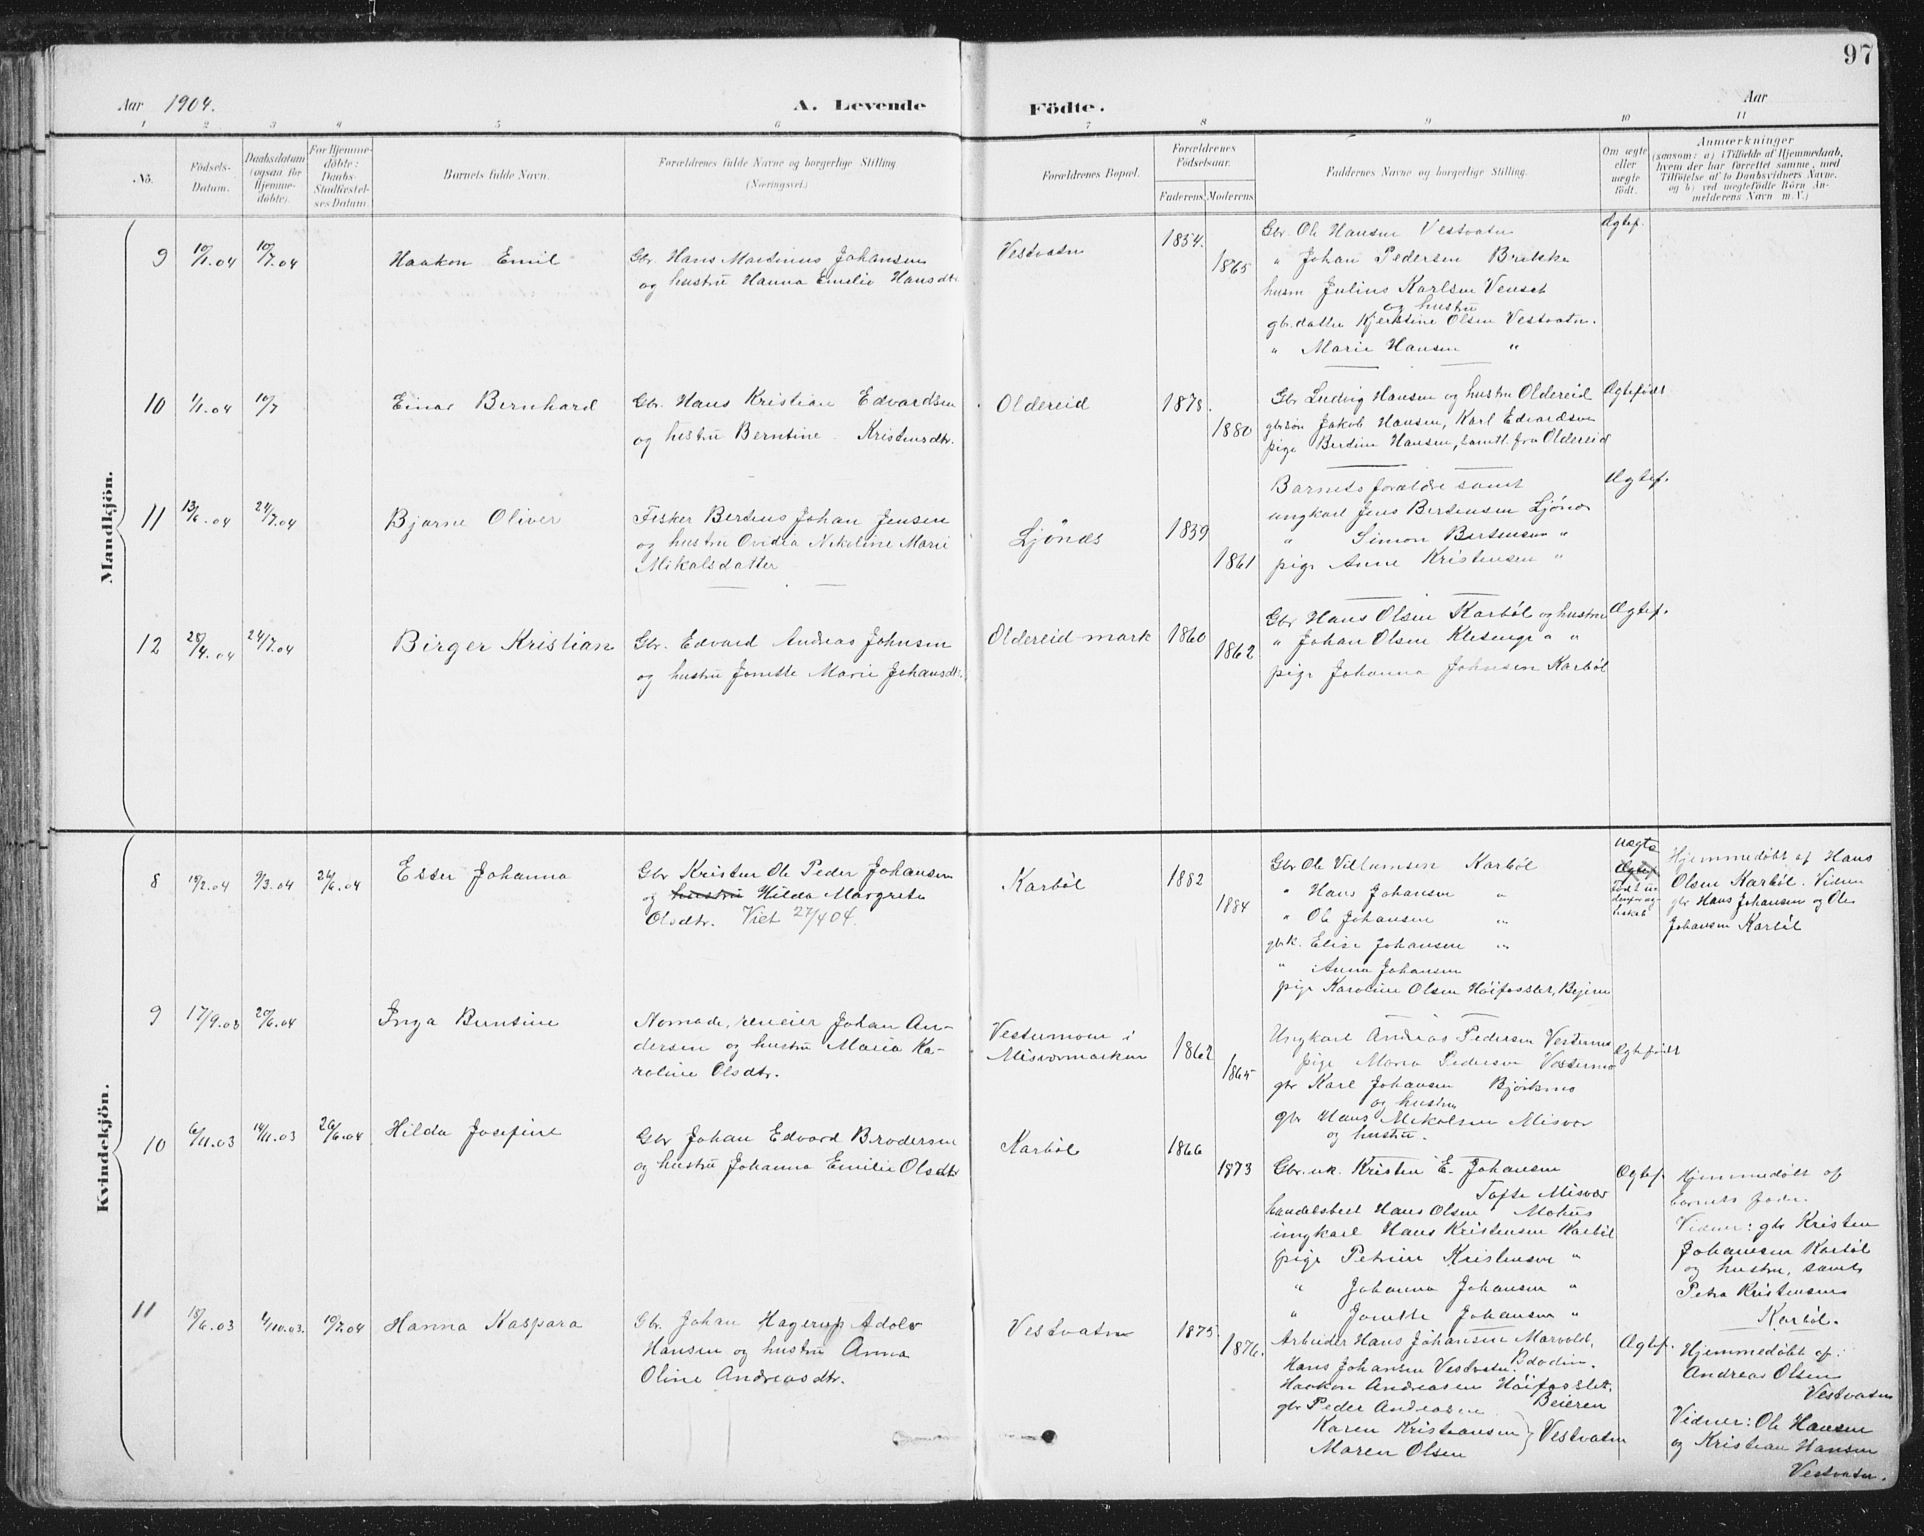 97
Aar 1904. A. Levende Födte. Aar
1 2 3 4 5 6 7 8 9 10 11
No. Födsels-Datum. Daabsdatum (ogsaa for Hjemmedöbte). For Hjemmedöbte: Daabs-Stadfestelses Datum. Barnets fulde Navn. Forældrenes fulde Navne og borgerlige Stilling (Næringsvei.) Forældrenes Bopæl. Forældrenes Födselsaar. Faderens Moderens Faddernes Navne og borgerlige Stilling. Om ægte eller uægte födt. Anmærkninger (saasom: a) i Tilfælde af Hjemmedaab, hvem der har forrettet samme, med Tilföielse af to Daabsvidners Navne, og b) ved uegtefödte Börn Anmelderens Navn m. V.)
Mandkjön.
9 10/1.04 10/7.04 Haakon Emil
Gbr. Hans Martinius Johansen
og hustru Hanna Emilie Hansdtr.
Vestvatn 1854. 1865
Gbr. Ole Hansen Vestvatn
" Johan Pedersen Brekke
husm Julius Karlsen Venset
og hustru
gbr.datter Kjerstine Olsen Vestvatn.
" Marie Hansen "
Ægtef.
10 1/1.04 10/7 Einar Bernhard
Gbr. Hans Kristian Edvardsen
og hustru Berntine Kristensdtr.
Oldereid 1878. 1880
Gbr Ludvig Hansen og hustru Oldereid
gbrsön Jakob Hansen, Karl Edvardsen
pige Berdine Hansen, samtl. fra Oldereid
Ægtefødt
11 13/6.04 24/7.04 Bjarne Oliver
Fisker Bertens Johan Jensen
og hustru Ovidia Nikoline Marie
Mikalsdatter
Ljönes 1859 1861
Barnets forældre samt
ungkarl Jens Bertensen Ljönes
" Simon Bertensen "
pige Anne Kristensen "
Ægtef.
12 28/4.04 24/7.04 Birger Kristian
Gbr. Edvard Andreas Johnsen
og hustru Jonette Marie Johansdtr.
Oldereid mark 1860 1862
Gbr Hans Olsen Karböl og hustru
" Johan Olsen " "
pige Johanna Johnsen Karböl
Ægtef.
Kvindekjön.
8 19/2.04 9/3.04 26/6.04 Ester Johanna
Gbr Kristen Ole Peder Johansen
og hustru Hilda Margrete
Olsdtr. Viet 27/4 04.
Karböl 1882 1884
Gbr Ole Villumsen Karböl
" Hans Johansen "
" Ole Johansen "
gbrk. Elise Johansen "
" Anna Johansen
pige Karoline Olsen Höifosslet, Bejern
Uægte
Ægtef.
födt udenfor ægteskab
Hjemmedöbt af Hans
Olsen Karböl. Vidner
gbr Hans Johansen og Ole
Johansen Karböl
9 17/9.03 26/6.04 Inga Berntine
Nomade, reneier Johan An-
dersen og hustru Maria Ka-
roline Olsdtr.
Vestermoen i
Misværmarken 1862 1865
Ungkarl Andreas Pedersen Vestermo
pige Maria Pedersen Vestermo
gbr Karl Johansen Björkmo
og hustru
gbr Hans Mikalsen Misvær
og hustru.
Ægtefödt
10 6/11.03 14/11.03 26/6.04 Hilda Josefine
Gbr Johan Edvard Brodersen
og hustru Johanna Emilie Olsdtr
Karböl 1866 1873
Gbr. uk. Kristen E. Johansen
Tofte Misvær
handelsbest Hans Olsen Mohus
ungkarl Hans Kristensen Karböl
pige Petrine Kristensen "
" Johanna Johansen "
" Jonette Johansen "
Ægtef.
Hjemmedöbt af
barnets fader.
Vidner: gbr Kristen
Johansen Karböl
og hustru, samt
Petra Kristensen
Karböl.
11 18/6.03 1/10.03. 10/7.04 Hanna Kaspara
Gbr. Johan Hagerup Adolv
Hansen og hustru Anna
Oline Andreasdtr.
Vestvatn 1875 1876.
Arbeider Hans Johansen Marvold,
Bdodin.
Hans Johansen Vestvatn.
Haakon Andreasen Höifosslet,
Beieren
gbr Peder Andreasen
Karen Kristiansen } Vestvatn
Maren Olsen
Ægtef.
Hjemmedöbt af:
Andreas Olsen
Vestvatn
Vidner: Ole Hansen
og Kristian Hansen
Vestvatn.